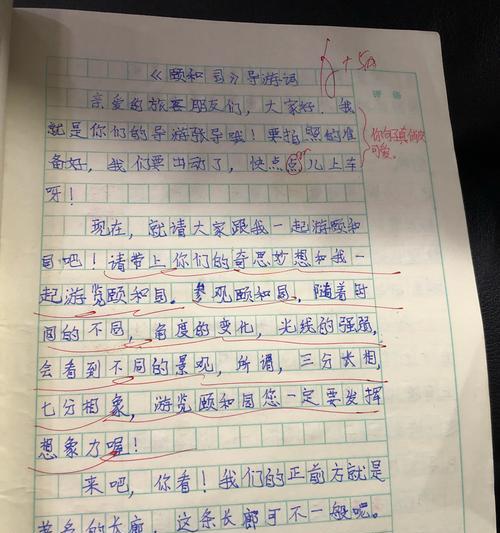 《颐和园》导游词
亲爱的旅客朋友们，大家好。我
就是你们的导游张导哦！要拍照的准
备好，我们要出动了，快点点儿上车
呀！
现在，就请大家跟我一起游颐和
园吧！请带上你们的奇思妙想和我一
起游览颐和园。参观颐和园，随着时
间的不同，角度的变化，光线的强弱，
会看到不同的景观，所谓，三分长相，
七分相象，游览颐和园您一定要发挥
想象力喔！
来吧，你看！我们的正前方就是
著名的长廊，这条长廊可不一般呢。
评语
可爱。